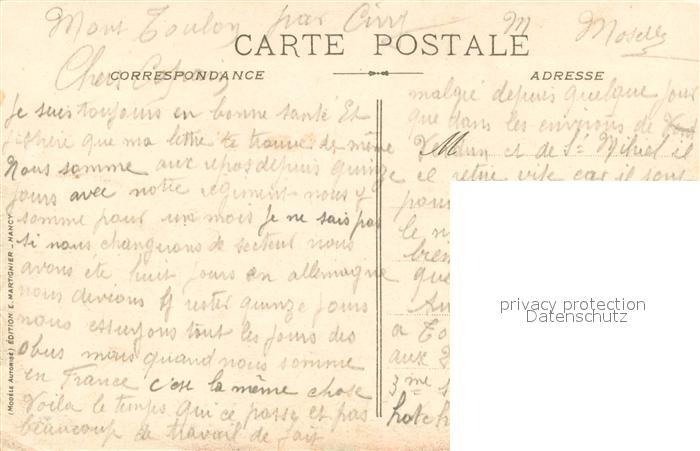 Mont Toulon par Ciry Moselle
CARTE POSTALE
CORRESPONDANCE
ADRESSE
Chers
Je suis toujours en bonne santé Et
j'éspère que ma lettre te trouve de même
Nous somme aux repos depuis quinze
jours avec notre régiment nous y
somme pour un mois Je ne sais pas
si nous changerons de secteur nous
avons été huit jours en allemagne
nous devions y rester quinze jours
nous essuyons tout les jours des
obus mais quand nous somme
en France c'est la même chose
Voila le temps qui ce passe et pas
beaucoup de travail de fait
malgré depuis quelque jour
que dans les environs de
M Verdun et de St Mihiel il
vite car il sont
pour
le
bien
que
a To
aux
3me
hotch
(Modèle Autorisé) ÉDITION E. MARTIGNIER - NANCY
privacy protection
Datenschutz